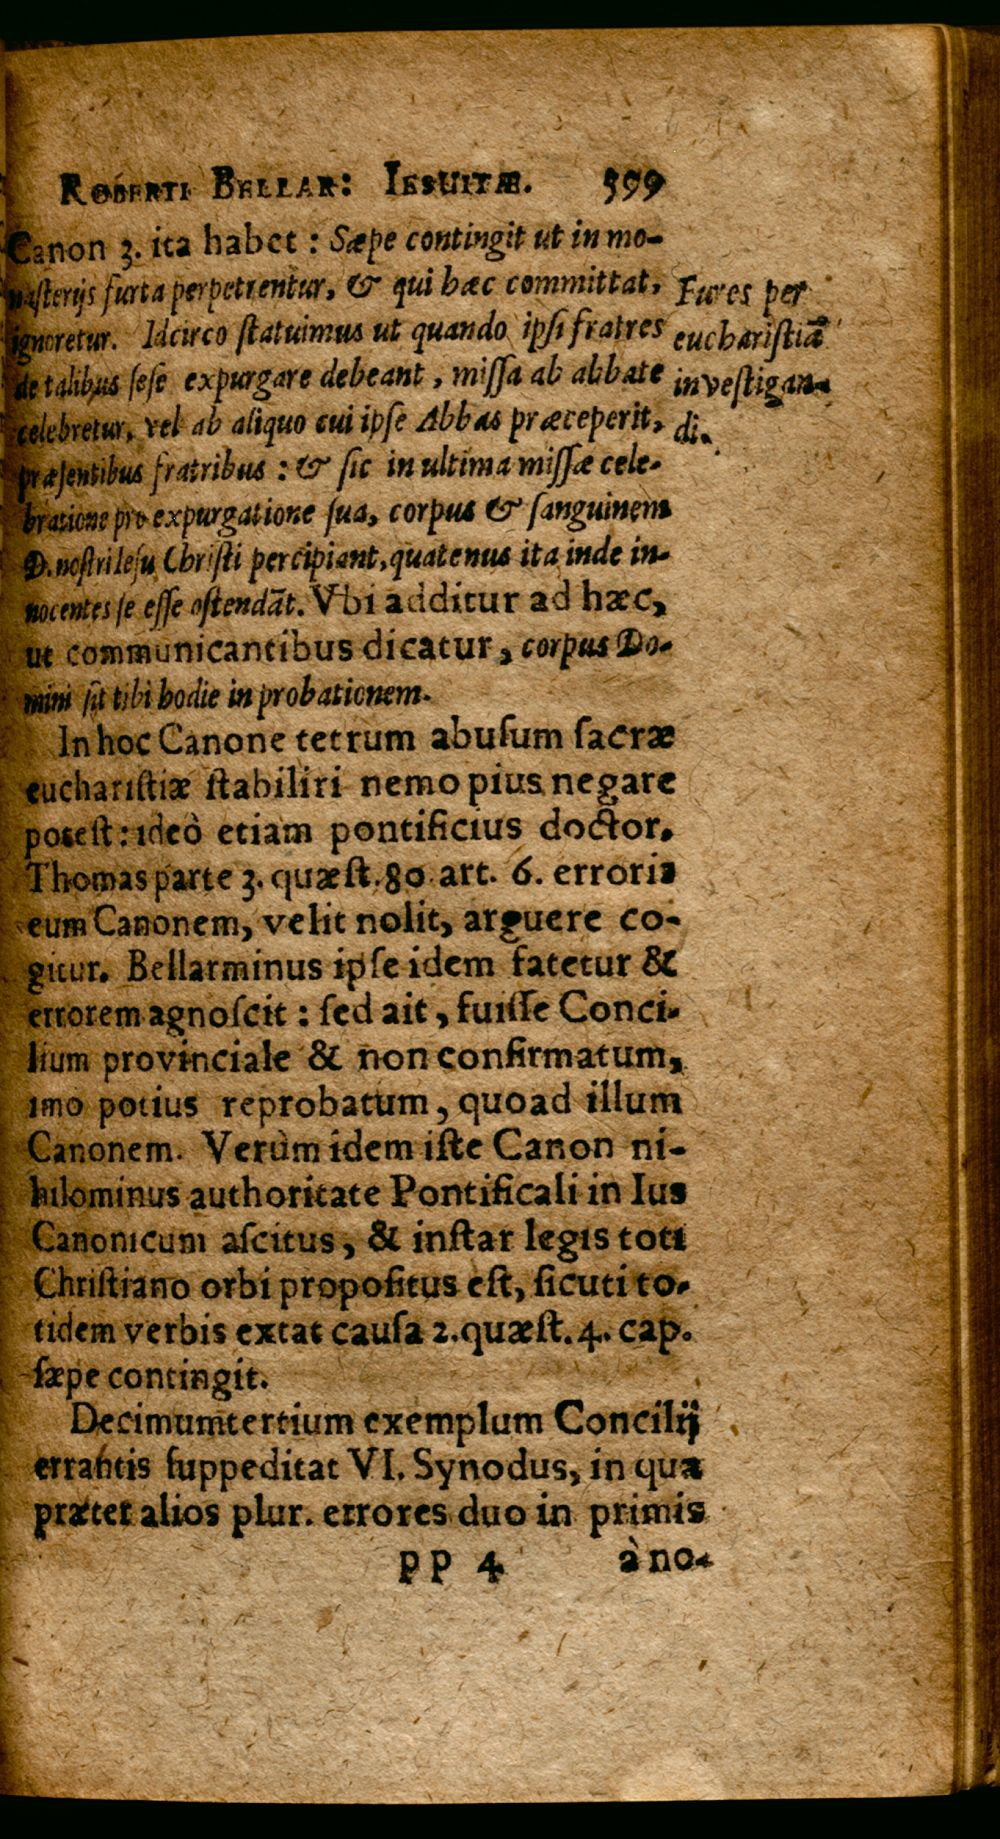 ROBERTI BELLAR: IESUITÆ. 599
Canon 3. ita habet : Sæpe contingit ut in mo-
nasterijs furta perpetrentur, & qui hæc committat,
ignoretur. Idcirco statuimus ut quando ipsi fratres
de talibus sese expurgare debeant, missa ab abbate
celebretur, vel ab aliquo cui ipse Abbas præceperit,
præsentibus fratribus : & sic in ultima missæ cele-
bratione pro expurgatione sua, corpus & sanguinem
D. nostri Iesu Christi percipiant, quatenus ita inde in-
nocentes se esse ostendāt. Vbi additur ad hæc,
ut communicantibus dicatur, corpus Do-
mini sit tibi hodie in probationem.
Fures per
eucharistiā
investigan-
di.
In hoc Canone tetrum abusum sacræ
eucharistiæ stabiliri nemo pius negare
potest: ideò etiam pontificius doctor.
Thomas parte 3. quæst. 80. art. 6. erroris
eum Canonem, velit nolit, arguere co-
gitur. Bellarminus ipse idem fatetur &
errorem agnoscit : sed ait, fuisse Conci-
lium provinciale & non confirmatum,
imo potius reprobatum, quoad illum
Canonem. Verùm idem iste Canon ni-
hilominus authoritate Pontificali in Ius
Canonicum ascitus, & instar legis toti
Christiano orbi propositus est, sicuti to-
tidem verbis extat causa 2. quæst. 4. cap.
sæpe contingit.
Decimumtertium exemplum Concilij
errantis suppeditat VI. Synodus, in qua
præter alios plur. errores duo in primis
pp 4 à no-